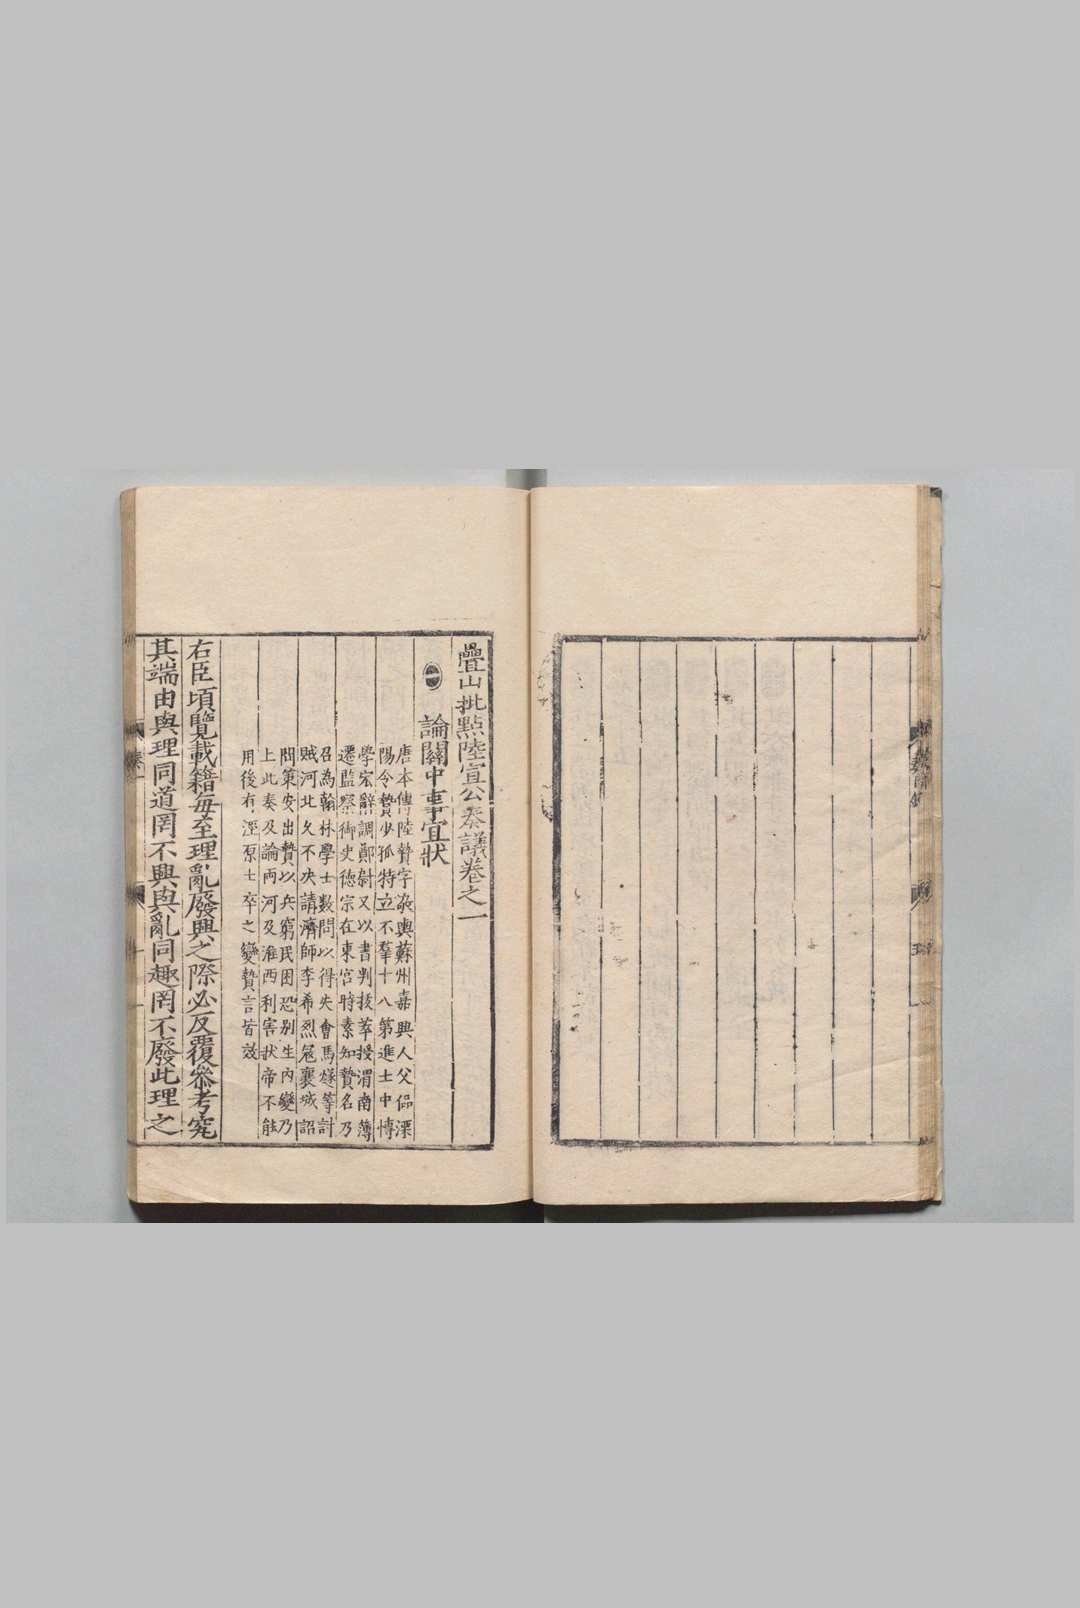 疊山批點陸宣公奏議卷之一
㊀論關中事宜狀
唐本傳陸贄字敬輿蘇州嘉興人父偘溧
陽令贄少孤特立不羣十八第進士中博
學宏辭調鄭尉又以書判拔萃授渭南薄
遷監察御史德宗在東宮時素知贄名乃
召為翰林學士數問以得失會馬燧等討
賊河北久不决請濟師李希烈冦襄城詔
問策安出贄以兵窮民困恐别生内變乃
上此奏及論兩河及淮西利害狀帝不能
用後有涇原士卒之變贄言皆效
右臣頃覽載籍每至理亂廢興之際必反覆叅考究
其端由與理同道罔不興與亂同趣罔不廢此理之